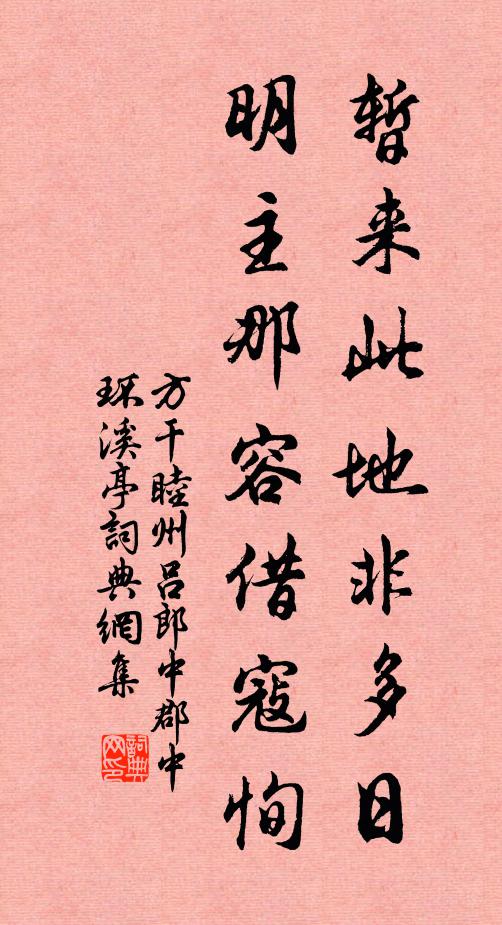 暫来此地非多日
明主那容借寇恂
方干睦州吕郎中郡中
环溪亭詞典網集
詞典
网印